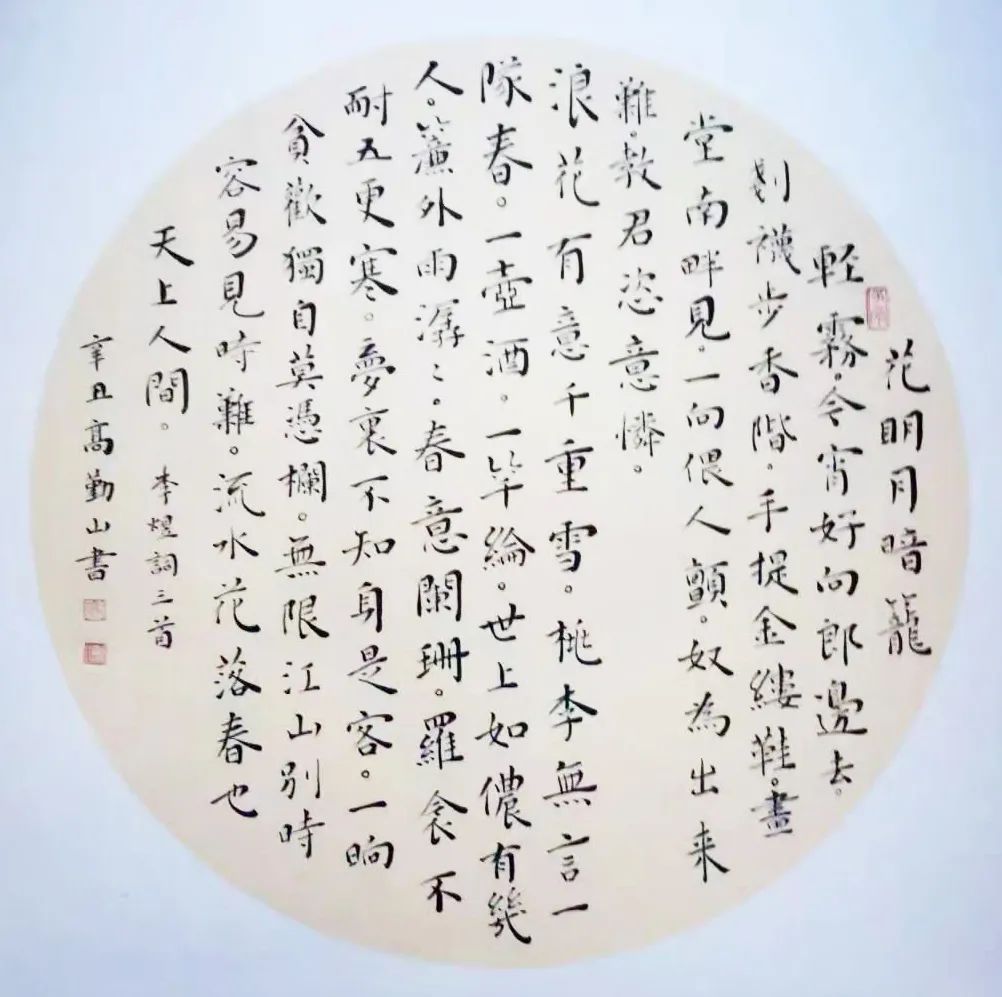 花明月暗籠
輕霧。今宵好向郎邊去。
剗襪步香階。手提金縷鞋。畫
堂南畔見。一向偎人顫。奴為出來
難。教君恣意憐。
浪花有意千重雪。桃李無言一
隊春。一壺酒。一竿綸。世上如儂有幾
人。簾外雨潺〻。春意闌珊。羅衾不
耐五更寒。夢裏不知身是客。一晌
貪歡獨自莫憑欄。無限江山別時
容易見時難。流水花落春也
天上人間。李煜詞三首
辛丑高勤山書